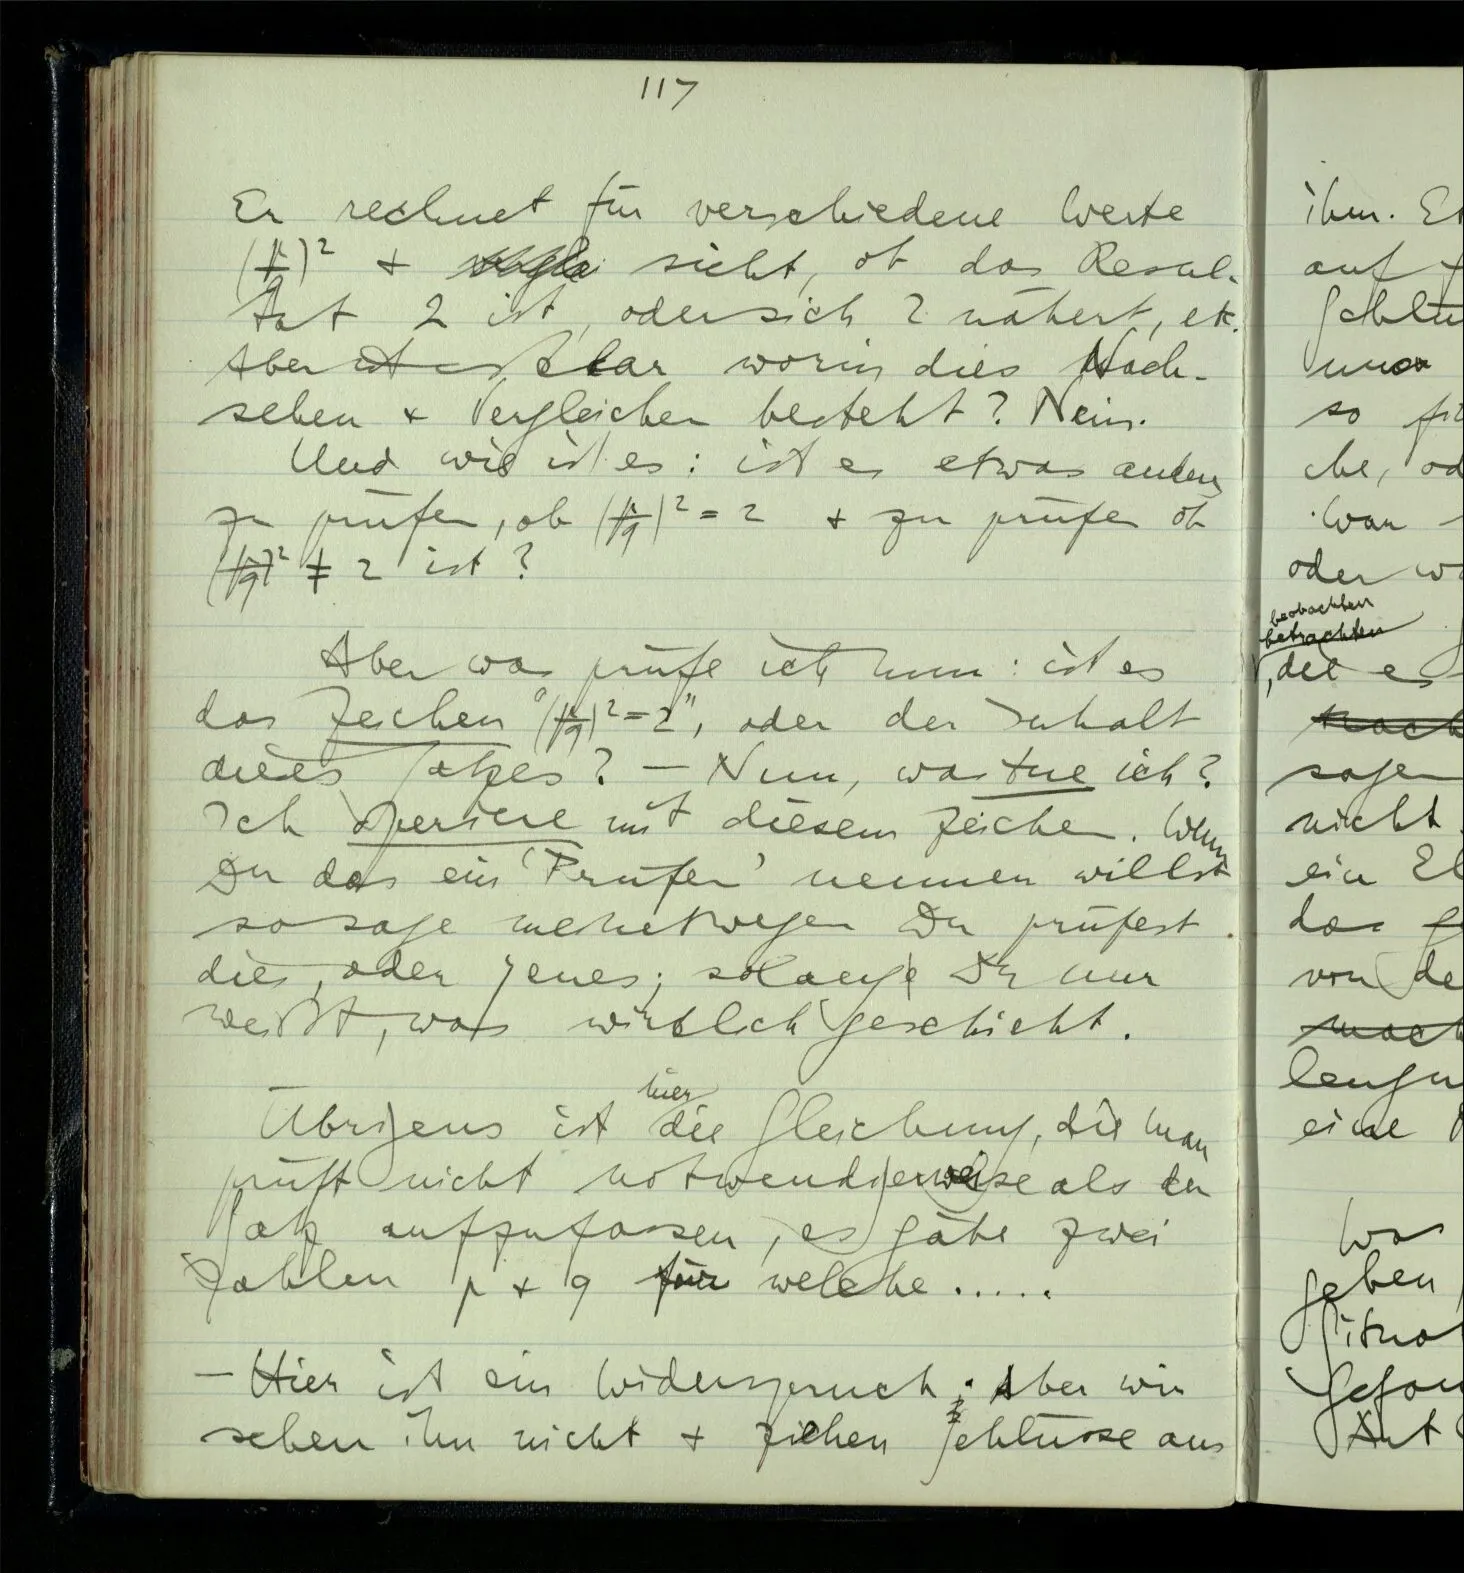 117
Er rechnet für verschiedene Werte
(p/q)² & sieht, ob das Resul-
tat 2 ist, oder sich 2 nähert, etc.
Aber ist es klar worin dies Nach-
sehen & Vergleichen besteht? Nein.
Und wie ist es: ist es etwas anders
zu prüfen, ob (p/q)² = 2 & zu prüfen ob
(p/q)² ≠ 2 ist?
Aber was prüfe ich nun: ist es
das Zeichen "(p/q)² = 2", oder der Inhalt
dieses Satzes? — Nun, was tue ich?
Ich operiere mit diesem Zeichen. Wenn
Du das ein 'Prüfen' nennen willst
so sage meinetwegen Du prüfest
dies, oder jenes; solange Du nur
weißt, was wirklich geschieht.
hier
Übrigens ist die Gleichung, die man
prüft nicht notwendigerweise als den
Satz aufzufassen, es gäbe zwei
Zahlen p & q für welche.....
— Hier ist ein Widerspruch: Aber wir
sehen ihn nicht & ziehen Schlüsse aus
ihm.
auf
so
che,
War
oder
beobachten
betrachten
, der es
nach
sagen
nicht
ein
das
von
leugn
eine
Was
geben
Art